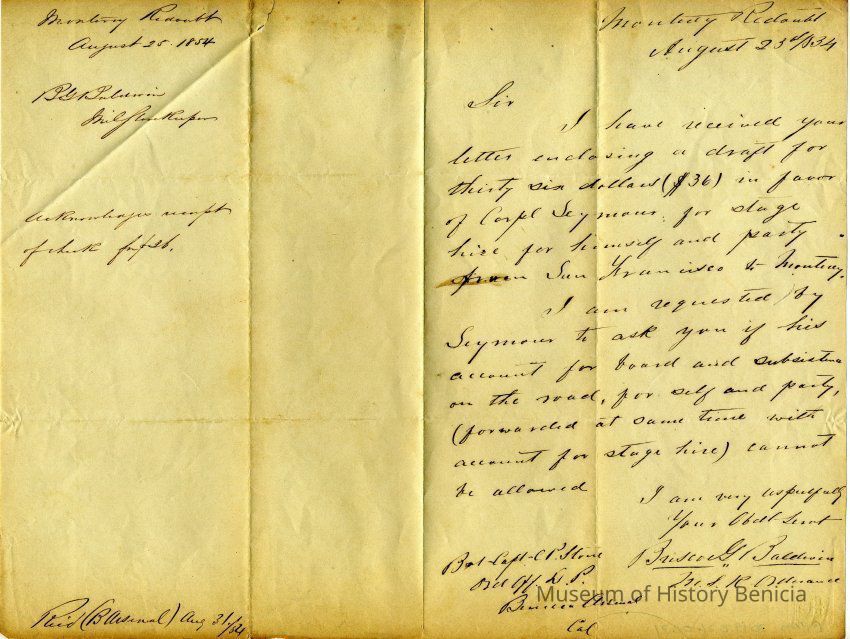 Monterey Redoubt
August 25. 1854
B G Baldwin
Mil Storekeeper
Acknowledges receipt
of check for $36.
Recd (B Arsenal) Aug 31/54
Monterey Redoubt
August 23d/54
Sir
I have received your
letter enclosing a draft for
thirty six dollars ($36) in favor
of Corpl Seymour, for stage
hire for himself and party
from San Francisco to Monterey.
I am requested by
Seymour to ask you if his
account for board and subsistence
on the road, for self and party,
(forwarded at same time with
account for stage hire) cannot
be allowed
I am very respectfully
Your Obdt Servt
Briscoe G. Baldwin
M. S. K. Ordnance
Bvt Capt C. P. Stone
Ord Off. D. P.
Benicia Arsenal
Cal
Museum of History Benicia